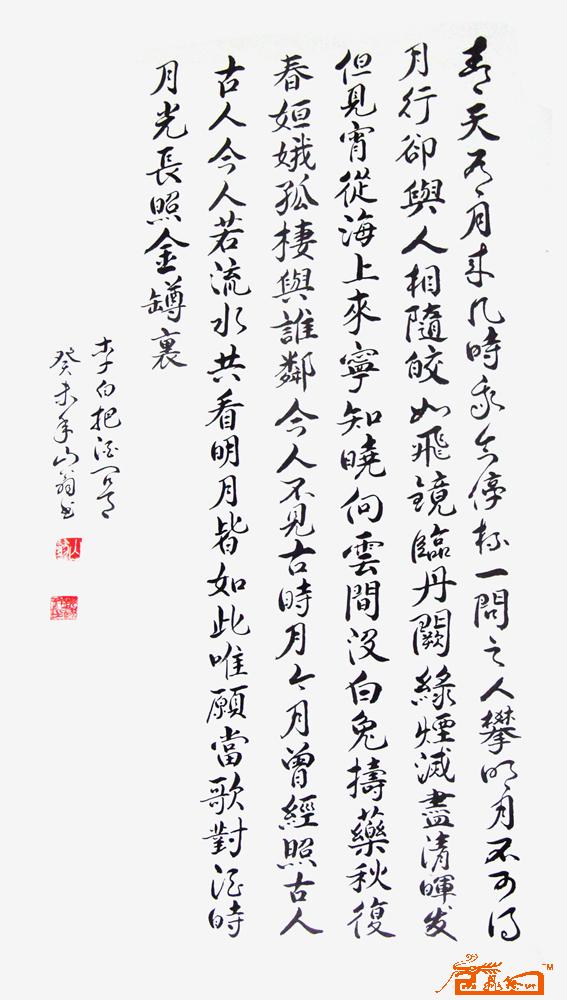 青天有月来几時我今停杯一問之人攀明月不可得
月行卻與人相隨皎如飛鏡臨丹闕綠煙滅盡清暉发
但見宵從海上來寧知曉向雲間沒白兔擣藥秋復
春姮娥孤棲與誰鄰今人不見古時月今月曾經照古人
古人今人若流水共看明月皆如此唯願當歌對酒時
月光長照金罇裏
李白把酒問月
癸未年山翁书